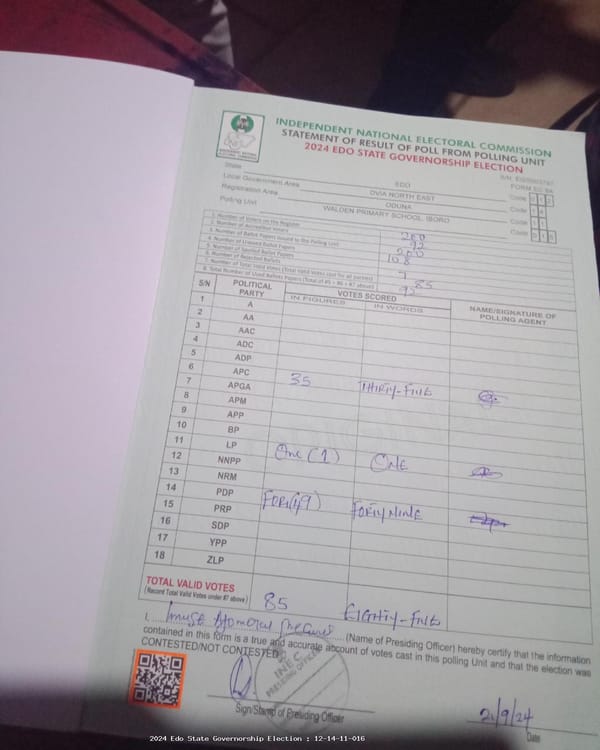 INDEPENDENT NATIONAL ELECTORAL COMMISSION
STATEMENT OF RESULT OF POLL FROM POLLING UNIT
2024 EDO STATE GOVERNORSHIP ELECTION
FORM EC 8A
State EDO Code 1 2
Local Government Area OVIA NORTH EAST Code 1 4
Registration Area ODUNA Code 1 1
Polling Unit WALDEN PRIMARY SCHOOL, IBORO Code 0 1 6
1. Number of Voters on the Register 200
2. Number of Accredited Voters 92
3. Number of Ballot Papers Issued to the Polling Unit 200
4. Number of Unused Ballot Papers 108
5. Number of Spoiled Ballot Papers
6. Number of Rejected Ballots 7
7. Number of Total Valid Votes (Total Valid Votes cast for all parties) 85
8. Total Number of Used Ballots Papers (Total of #5 + #6 + #7 above) 92
S/N POLITICAL PARTY VOTES SCORED NAME/SIGNATURE OF POLLING AGENT
IN FIGURES IN WORDS
1 A
2 AA
3 AAC
4 ADC
5 ADP
6 APC 35 THIRTY-FIVE
7 APGA
8 APM
9 APP
10 BP
11 LP One (1) ONE
12 NNPP
13 NRM
14 PDP FORTY NINE
15 PRP
16 SDP
17 YPP
18 ZLP
TOTAL VALID VOTES 85 EIGHTY-FIVE
(Record Total Valid Votes under #7 above)
I, (Name of Presiding Officer) hereby certify that the information
contained in this form is a true and accurate account of votes cast in this polling Unit and that the election was
CONTESTED/NOT CONTESTED
INEC
PRESIDING OFFICER
Sign/Stamp of Presiding Officer
21/9/24
Date
2024 Edo State Governorship Election : 12-14-11-016